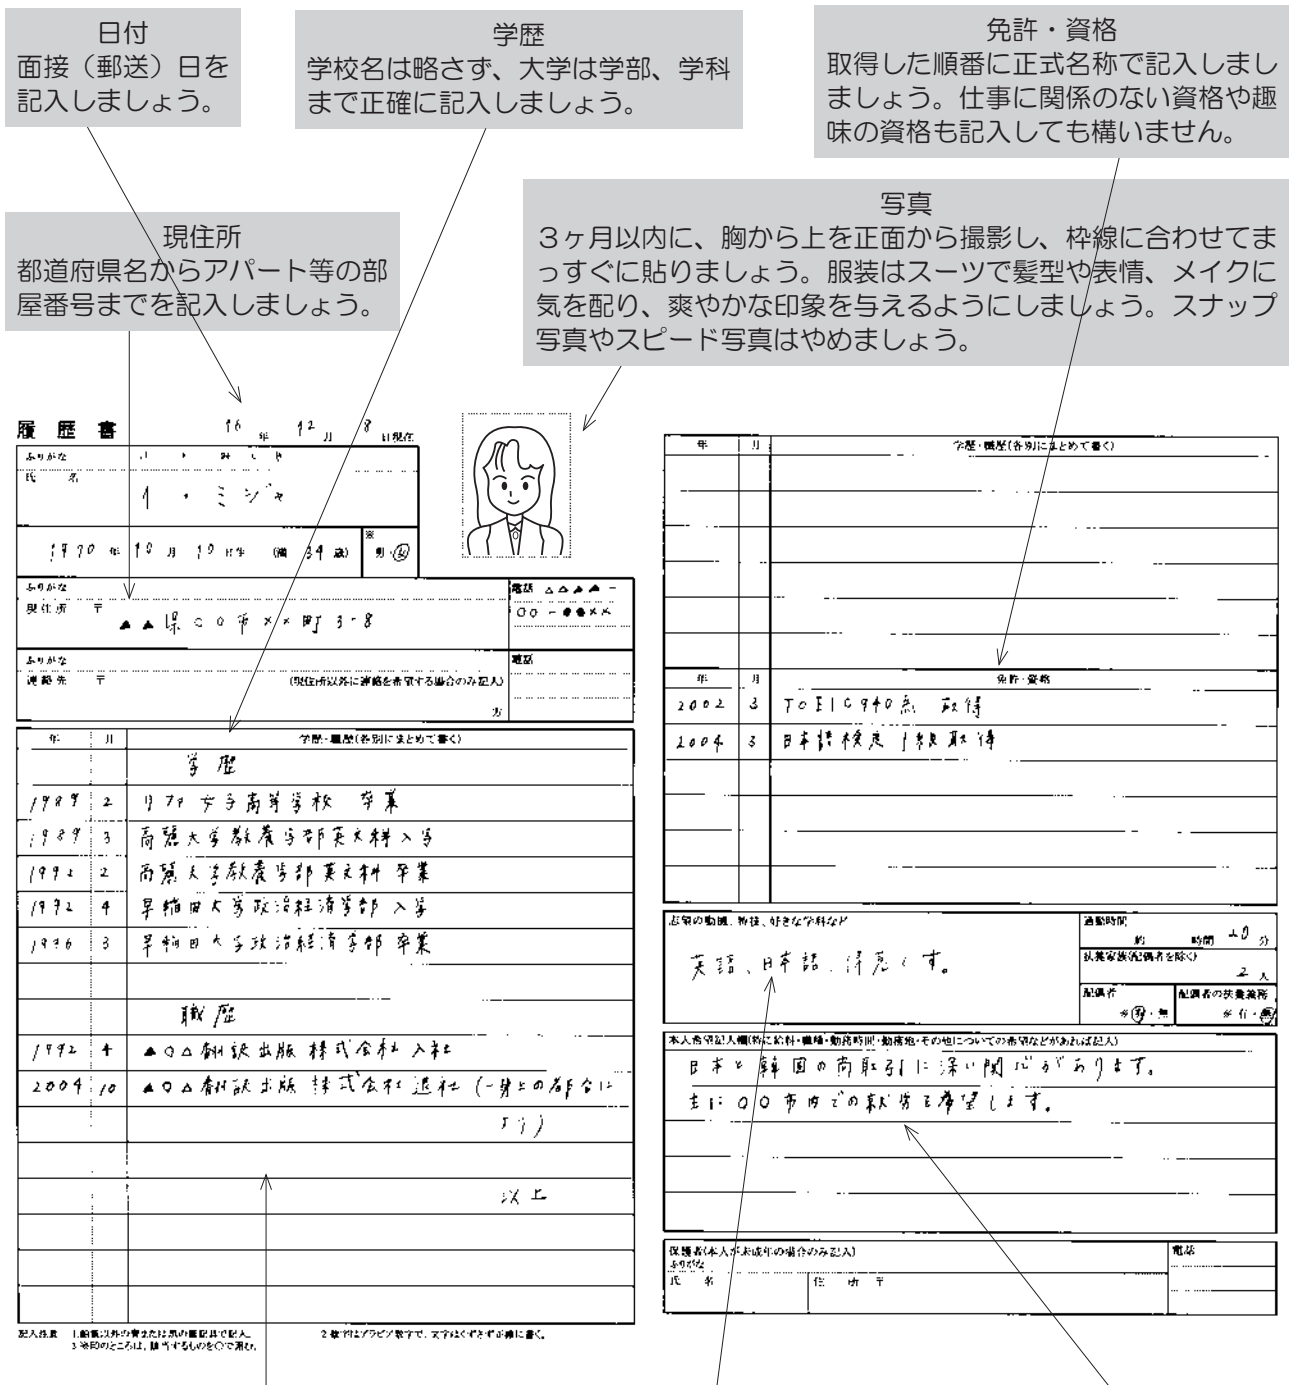 日付
面接（郵送）日を
記入しましょう。
学歴
学校名は略さず、大学は学部、学科
まで正確に記入しましょう。
免許・資格
取得した順番に正式名称で記入しまし
ましょう。仕事に関係のない資格や趣
味の資格も記入しても構いません。
現住所
都道府県名からアパート等の部
屋番号までを記入しましょう。
写真
３ヶ月以内に、胸から上を正面から撮影し、枠線に合わせてま
っすぐに貼りましょう。服装はスーツで髪型や表情、メイクに
気を配り、爽やかな印象を与えるようにしましょう。スナップ
写真やスピード写真はやめましょう。
履歴書
16年 12月 8日現在
ふりがな
氏名
イ・ミジャ
1970年 10月 10日生 (満 34歳)
※
男・女
ふりがな
現住所 〒
▲▲県○○市××町3-8
電話 △△▲▲-
○○-●●××
ふりがな
連絡先 〒
(現住所以外に連絡を希望する場合のみ記入)
方
電話
年 月 学歴・職歴(各別にまとめて書く)
学歴
1989 2 女子高等学校 卒業
1989 3 高麗大学教養学部英文科入学
2 高麗大学教養学部英文科 卒業
1992 4 早稲田大学政治経済学部 入学
1996 3 早稲田大学政治経済学部 卒業
職歴
4 ▲○△翻訳出版 株式会社 入社
2004 10 ▲○△翻訳出版 株式会社 退社 (一身上の都合に
より)
以上
記入注意 1.鉛筆以外の青または黒の筆記具で記入。 2.数字はアラビア数字で、文字はくずさず正確に書く。
3.※印のところは、該当するものを○で囲む。
年 月 学歴・職歴(各別にまとめて書く)
年 月 免許・資格
2002 3 TOEIC940点 取得
2004 3 日本語検定 1級 取得
志望の動機、特技、好きな学科など
英語、日本語、得意です。
通勤時間
約 時間 分
扶養家族(配偶者を除く)
2人
配偶者
※有・無
配偶者の扶養義務
※有・無
本人希望記入欄(特に給料・職種・勤務時間・勤務地・その他についての希望などがあれば記入)
日本と韓国の商取引に深い関心があります。
主に○○市内での就労を希望します。
保護者(本人が未成年の場合のみ記入)
ふりがな
氏名 住所 〒
電話